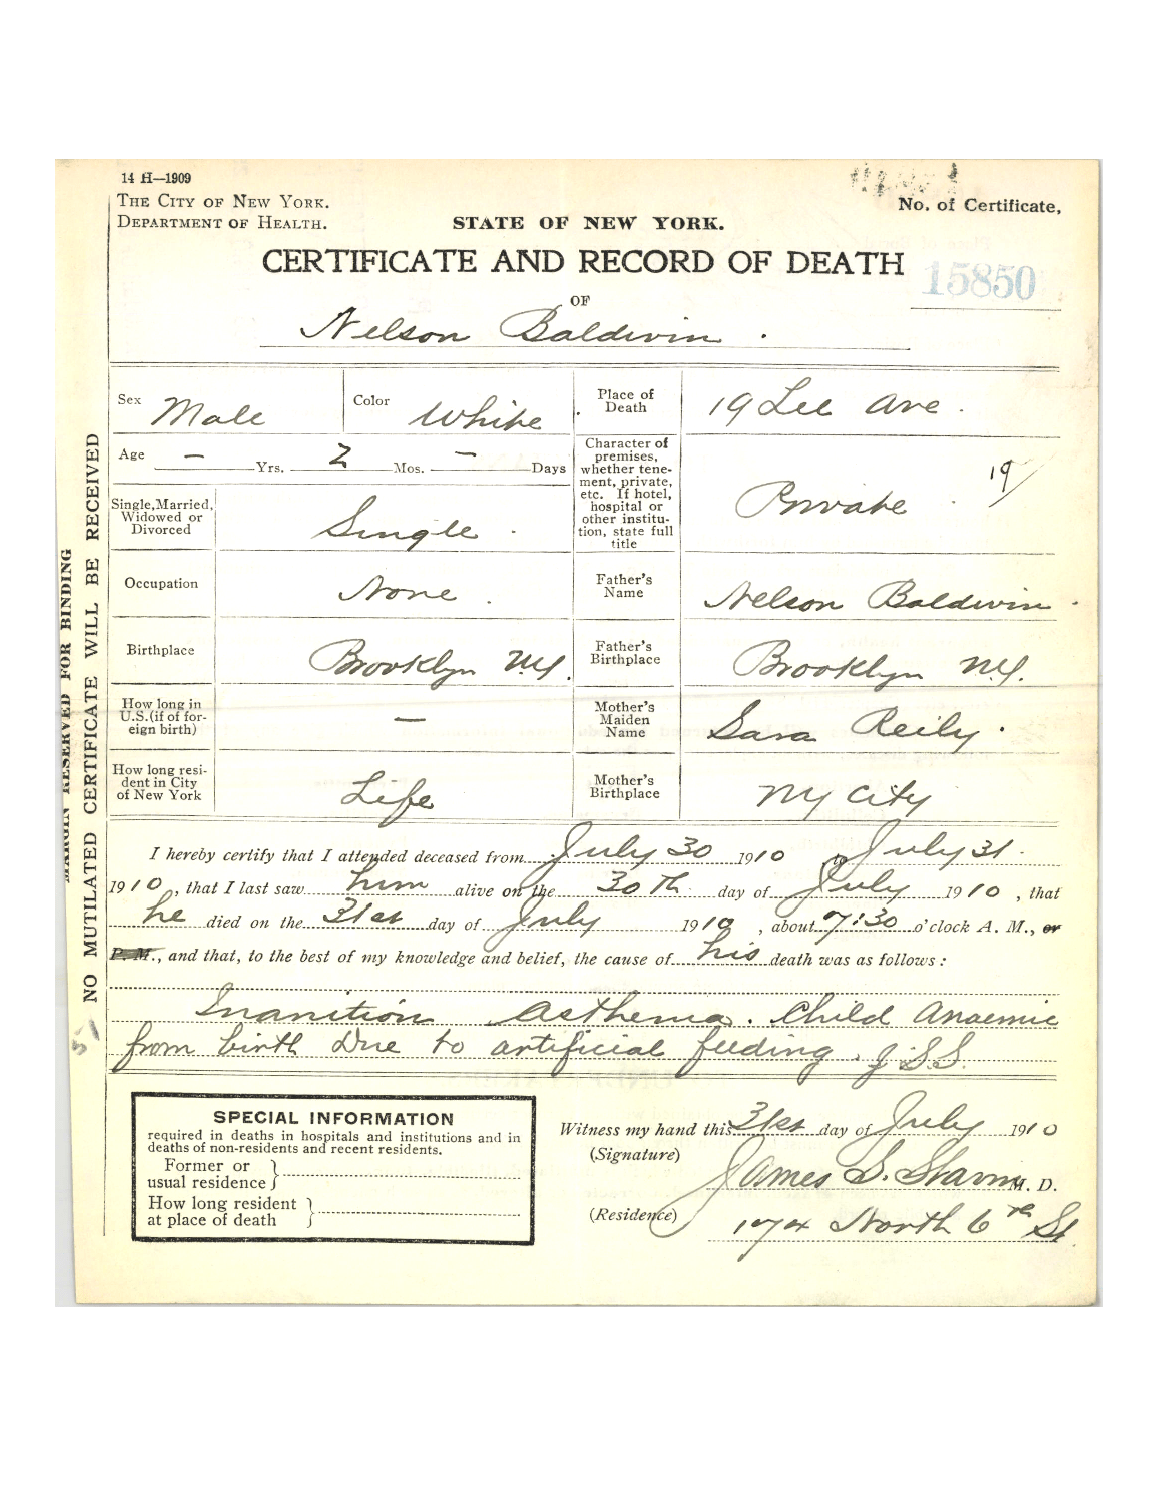 14 H—1909
THE CITY OF NEW YORK.
DEPARTMENT OF HEALTH.
STATE OF NEW YORK.
No. of Certificate,
CERTIFICATE AND RECORD OF DEATH
15850
OF
Nelson Baldwin .
Sex Male
Color White
Place of Death 19 Lee Ave .
Age — Yrs. 2 Mos. — Days
Character of premises, whether tenement, private, etc. If hotel, hospital or other institution, state full title Private . 19/
Single, Married, Widowed or Divorced Single .
Occupation None .
Father's Name Nelson Baldwin .
Birthplace Brooklyn N.Y.
Father's Birthplace Brooklyn N.Y.
How long in U.S. (if of foreign birth) —
Mother's Maiden Name Sara Reily .
How long resident in City of New York Life
Mother's Birthplace NY City
I hereby certify that I attended deceased from July 30 1910 to July 31.
1910, that I last saw him alive on the 30th day of July 1910, that
he died on the 31st day of July 1910, about 7:30 o'clock A. M., or
P. M., and that, to the best of my knowledge and belief, the cause of his death was as follows:
Inanition Asthema. Child Anaemic
from birth Due to artificial feeding. J.S.S.
SPECIAL INFORMATION
required in deaths in hospitals and institutions and in
deaths of non-residents and recent residents.
Former or
usual residence
How long resident
at place of death
Witness my hand this 31st day of July 1910
(Signature) James S. M. D.
(Residence) 174 North 6th St
MARGIN RESERVED FOR BINDING
NO MUTILATED CERTIFICATE WILL BE RECEIVED